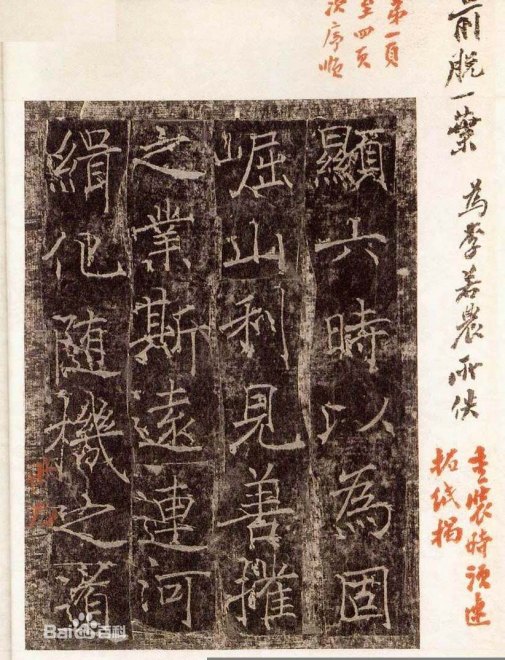 前脫一葉 為李若農所佚
第一頁
至四頁
次序順
重裝時須
拓紙揭
顯六時以為固
崛山利見善權
之業斯遠連河
緝化隨機之道
Bai百科